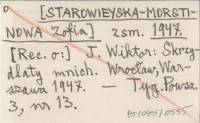 [STAROWIEYSKA-MORSTI-
NOWA Zofia] zsm. 1947.
[Rec. o:] J. Wiktor: Skrzy-
dlaty mnich. Wrocław, War-
szawa 1947. — Tyg. Powsz.
3, nr 13.